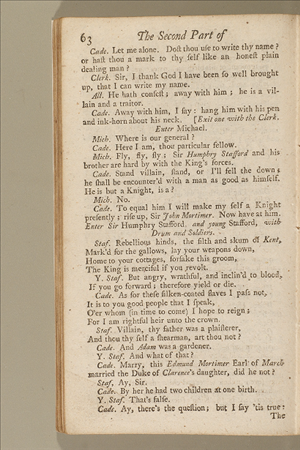 63 The Second Part of
Cade. Let me alone. Doſt thou uſe to write thy name?
or haſt thou a mark to thy ſelf like an honeſt plain
dealing man?
Clerk. Sir, I thank God I have been ſo well brought
up, that I can write my name.
All. He hath confeſt; away with him; he is a vil-
lain and a traitor.
Cade. Away with him, I ſay: hang him with his pen
and ink-horn about his neck. [Exit one with the Clerk.
Enter Michael.
Mich. Where is our general?
Cade. Here I am, thou particular fellow.
Mich. Fly, fly, fly; Sir Humphry Stafford and his
brother are hard by with the King's forces.
Cade. Stand villain, ſtand, or I'll fell thee down;
he ſhall be encounter'd with a man as good as himſelf.
He is but a Knight, is a?
Mich. No.
Cade. To equal him I will make my ſelf a Knight
preſently; riſe up, Sir John Mortimer. Now have at him.
Enter Sir Humphry Stafford, and young Stafford, with
Drum and Soldiers.
Staf. Rebellious hinds, the filth and ſkum of Kent,
Mark'd for the gallows, lay your weapons down,
Home to your cottages, forſake this groom,
The King is merciful if you revolt.
Y. Staf. But angry, wrathful, and inclin'd to blood,
If you go forward; therefore yield or die.
Cade. As for theſe ſilken-coated ſlaves I paſs not,
It is to you good people that I ſpeak,
O'er whom (in time to come) I hope to reign;
For I am rightful heir unto the crown.
Staf. Villain, thy father was a plaiſterer,
And thou thy ſelf a ſhearman, art thou not?
Cade. And Adam was a gardener.
Y. Staf. And what of that?
Cade. Marry, this Edmund Mortimer Earl of March
married the Duke of Clarence's daughter, did he not?
Staf. Ay, Sir.
Cade. By her he had two children at one birth.
Y. Staf. That's falſe.
Cade. Ay, there's the queſtion; but I ſay 'tis true:
The